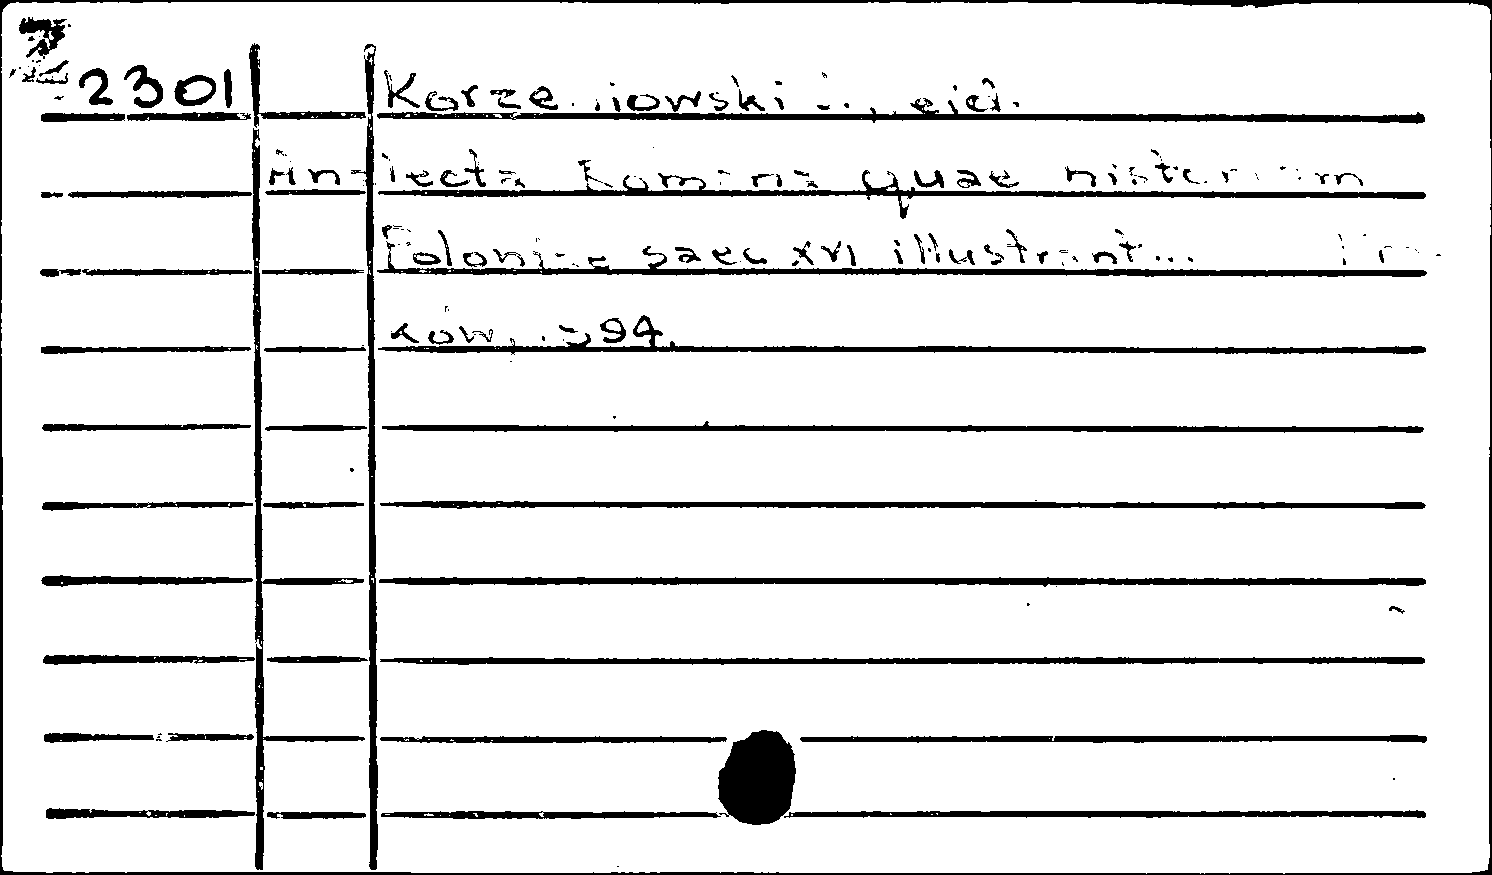 Z
2301 Korzeniowski J., ed.
Analecta Romana quae historiam
Poloniae saec XVI illustrant... Kra-
ków, 1894.